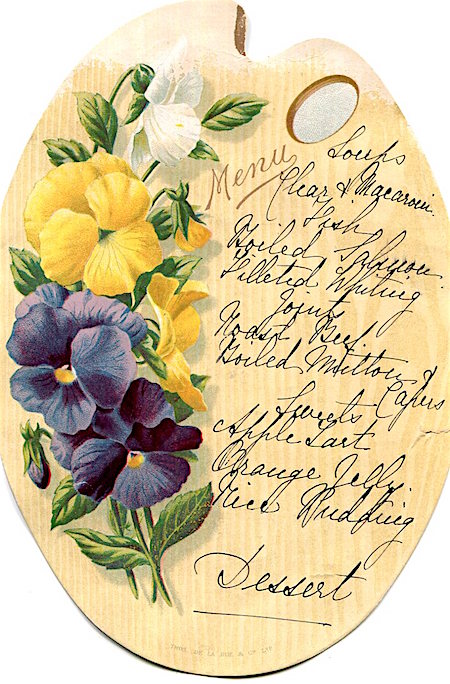 Menu
Soups
Clear & Macaroni.
Fish
Boiled Salmon.
Filleted Whiting
Joints
Roast Beef.
Boiled Mutton &
Capers
Sweets
Apple Tart
Orange Jelly.
Rice Pudding
Dessert
THOS. DE LA RUE & Co LTD